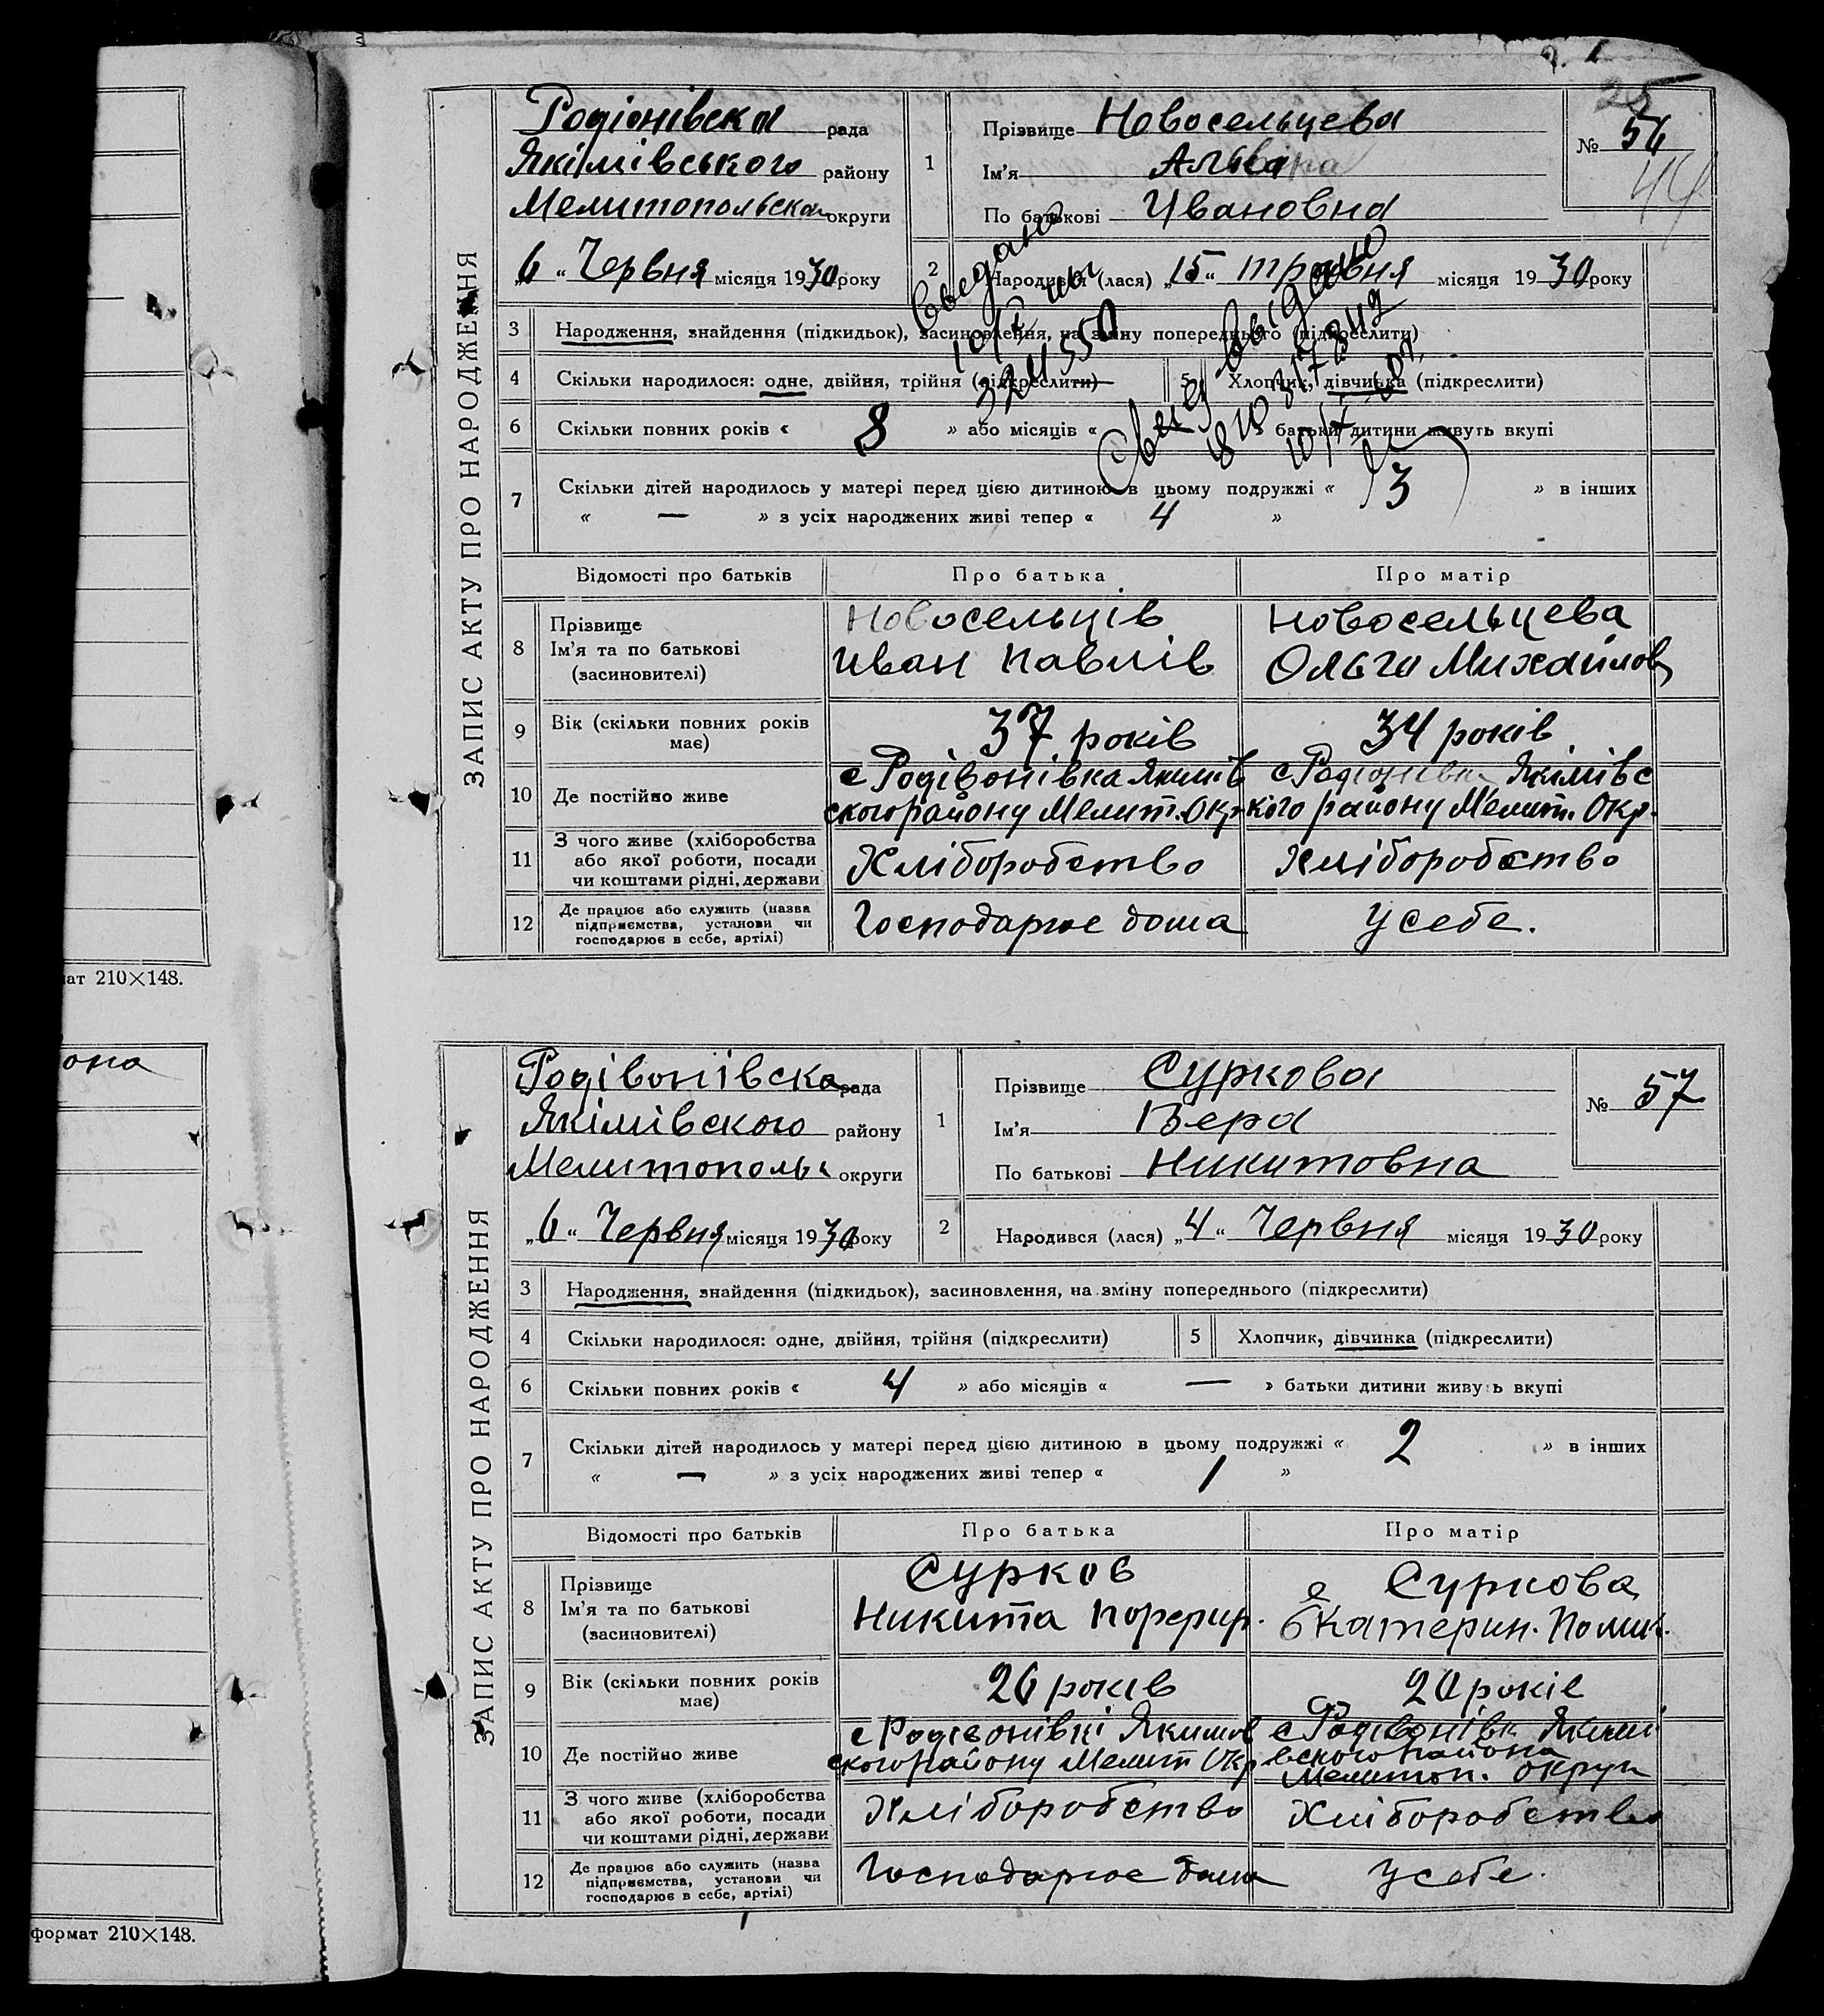 25
ЗАПИС АКТУ ПРО НАРОДЖЕННЯ
Родіонівска рада
Якімівського району
Мелитопольска округи
„6“ Червня місяця 1930 року
1
Прізвище Новосельцева
Ім'я
По батькові Ивановна
№ 56
44
2 Народився (лася) „15“ травня місяця 1930 року
3 Народження, знайдення (підкидьок), засиновлення, на зміну попереднього (підкреслити)
4 Скільки народилося: одне, двійня, трійня (підкреслити)
5 Хлопчик, дівчинка (підкреслити)
6 Скільки повних років « 8 » або місяців « » батьки дитини живуть вкупі
7 Скільки дітей народилось у матері перед цією дитиною в цьому подружжі « 3 » в інших
« — » з усіх народжених живі тепер « 4 »
Відомості про батьків Про батька Про матір
8 Прізвище
Ім'я та по батькові
(засиновителі)
Новосельців
Иван Павлів
Новосельцева
Ольга Михайлов
9 Вік (скільки повних років
має)
37 років
34 років
10 Де постійно живе
с Родівонівка Якимів
ского району Мелит. Окр.
с Родіонівка Якімівс
кого району Мелит. Окр.
11 З чого живе (хліборобства
або якої роботи, посади
чи коштами рідні, держави
Хліборобство
Хліборобство
12 Де працює або служить (назва
підприємства, установи чи
господарює в себе, артілі)
Господарює дома
У себе.
ат 210×148.
она
ЗАПИС АКТУ ПРО НАРОДЖЕННЯ
Родівонівска рада
Якімівского району
Мелитополь округи
„6“ Червня місяця 1930 року
1
Прізвище Суркова
Ім'я Вера
По батькові Никитовна
№ 57
2 Народився (лася) „4“ Червня місяця 1930 року
3 Народження, знайдення (підкидьок), засиновлення, на зміну попереднього (підкреслити)
4 Скільки народилося: одне, двійня, трійня (підкреслити)
5 Хлопчик, дівчинка (підкреслити)
6 Скільки повних років « 4 » або місяців « — » батьки дитини живуть вкупі
7 Скільки дітей народилось у матері перед цією дитиною в цьому подружжі « 2 » в інших
« — » з усіх народжених живі тепер « 1 »
Відомості про батьків Про батька Про матір
8 Прізвище
Ім'я та по батькові
(засиновителі)
Сурков
Никита Порфир.
Суркова
Екатерин.
9 Вік (скільки повних років
має)
26 років
20 років
10 Де постійно живе
с Родівонівкі Якимов
ского району Мелит Окр
с Родівонівк Якимі
вского района
Мелитоп. округи
11 З чого живе (хліборобства
або якої роботи, посади
чи коштами рідні, держави
Хліборобство
Хліборобство
12 Де працює або служить (назва
підприємства, установи чи
господарює в себе, артілі)
Господарює дома
У себе.
формат 210×148.